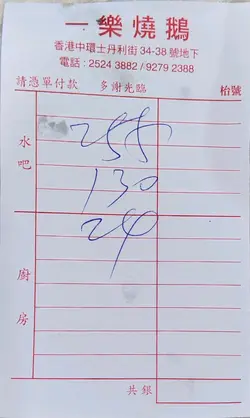 一樂燒鵝
香港中環士丹利街 34-38 號地下
電話 : 2524 3882 / 9279 2388
請憑單付款 多謝光臨 枱號
水吧
255
130
24
廚房
共銀